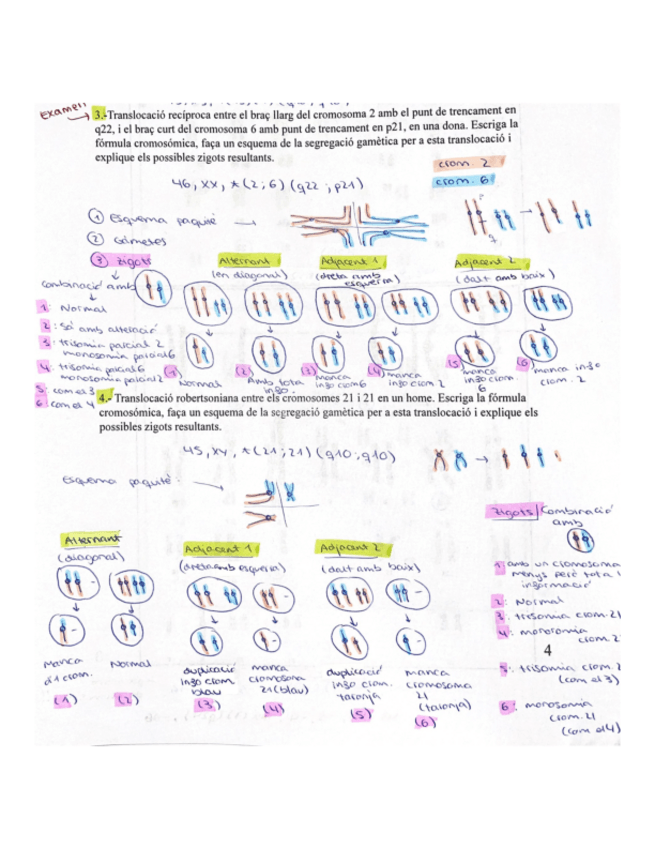 Examen
3.-Translocació recíproca entre el braç llarg del cromosoma 2 amb el punt de trencament en
q22, i el braç curt del cromosoma 6 amb punt de trencament en p21, en una dona. Escriga la
fórmula cromosómica, faça un esquema de la segregació gamètica per a esta translocació i
explique els possibles zigots resultants.
crom. 2
crom. 6
46, xx, t(2;6)(q22;p21)
1 Esquema paquitè
2 Gàmetes
3 Zigots
Combinació amb
1: Normal
2: amb alteració
3: trisomia parcial 2
monosomia parcial 6
4: trisomia parcial 6
monosomia parcial 2
5: com el 3
6: com el 4
Alternant
(en diagonal)
Adjacent 1
(dreta amb
esquerra)
Adjacent 2
(dalt amb baix)
(1) Normal
(2) Amb tota
info.
(3) manca
info crom 6
(4) manca
info crom 2
(5) manca
info crom
6
(6) manca info
crom. 2
4.- Translocació robertsoniana entre els cromosomes 21 i 21 en un home. Escriga la fórmula
cromosómica, faça un esquema de la segregació gamètica per a esta translocació i explique els
possibles zigots resultants.
45, xy, t(21;21)(q10;q10)
Esquema paquitè:
Alternant
(diagonal)
Adjacent 1
(dreta amb esquerra)
Adjacent 2
(dalt amb baix)
Manca
d'1 crom.
(1)
Normal
(2)
duplicació
info crom
blau
(3)
manca
cromosoma
21 (blau)
(4)
duplicació
info crom.
taronja
(5)
manca
cromosoma
21
(taronja)
(6)
Zigots/Combinació
amb
1: amb un cromosoma
menys però tota l
informació
2: Normal
3: trisomia crom. 21
4: monosomia
crom. 2
4
5: trisomia crom. 2
(com el 3)
6: monosomia
crom. 21
(com el 4)